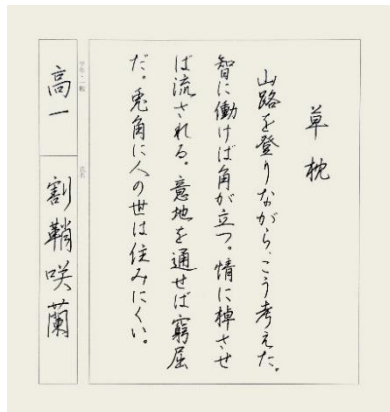 草枕
山路を登りながら、こう考えた。
智に働けば角が立つ。情に棹させ
ば流される。意地を通せば窮屈
だ。兎角に人の世は住みにくい。
高一
割鞘咲蘭